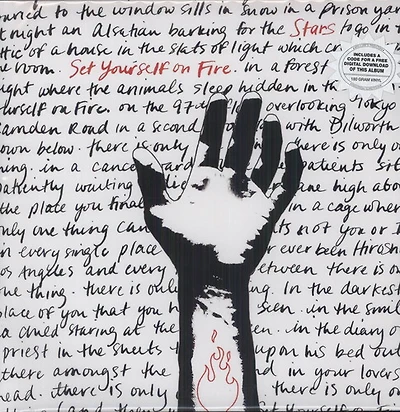 to the window sills in snow in a prison yar
t night an Alsatian barking for the Stars to go in t
ttic of a house in the slats of light which cr
he room. Set Yourself on Fire. in a forest
ght where the animals sleep hidden in the
urself on Fire. on the 97 overlooking Tokyo
amden Road in a second with Dilworth
own below. there is only here is only o
ning. in a cance ard patients sit
atiently waiting ane high abo
the place you final in a cage wher
nly one thing can ts not you or I
n every single place r ever been Hirosh
os Angeles and every etween there is on
ne thing. there is onl g. In the darkest
place of you that you h seen. in the smil
a child staring at the een. in the diary o
priest in the sheets upon his bed out
there amongst the d in your lovers
ead. there is only there is only o
INCLUDES A
CODE FOR A FREE
DIGITAL DOWNLOAD
OF THIS ALBUM
180 GRAM VINYL